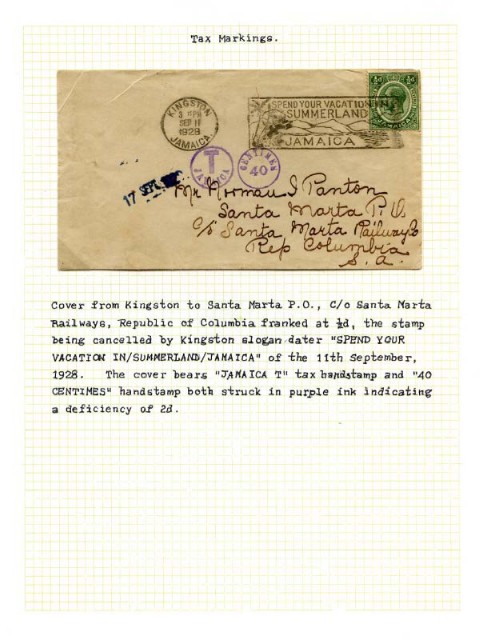 Tax Markings.
KINGSTON
3 PM
SEP 11
1928
JAMAICA
SPEND YOUR VACATION IN
SUMMERLAND
JAMAICA
½d
JAMAICA
T
JAMAICA
CENTIMES
40
17 SEP.
Mr Norman I Panton
Santa Marta P.O.
c/o Santa Marta Railway Co
Rep Columbia
S. A.
Cover from Kingston to Santa Marta P.O., C/o Santa Marta
Railways, Republic of Columbia franked at ½d, the stamp
being cancelled by Kingston slogan dater "SPEND YOUR
VACATION IN/SUMMERLAND/JAMAICA" of the 11th September,
1928. The cover bears "JAMAICA T" tax handstamp and "40
CENTIMES" handstamp both struck in purple ink indicating
a deficiency of 2d.